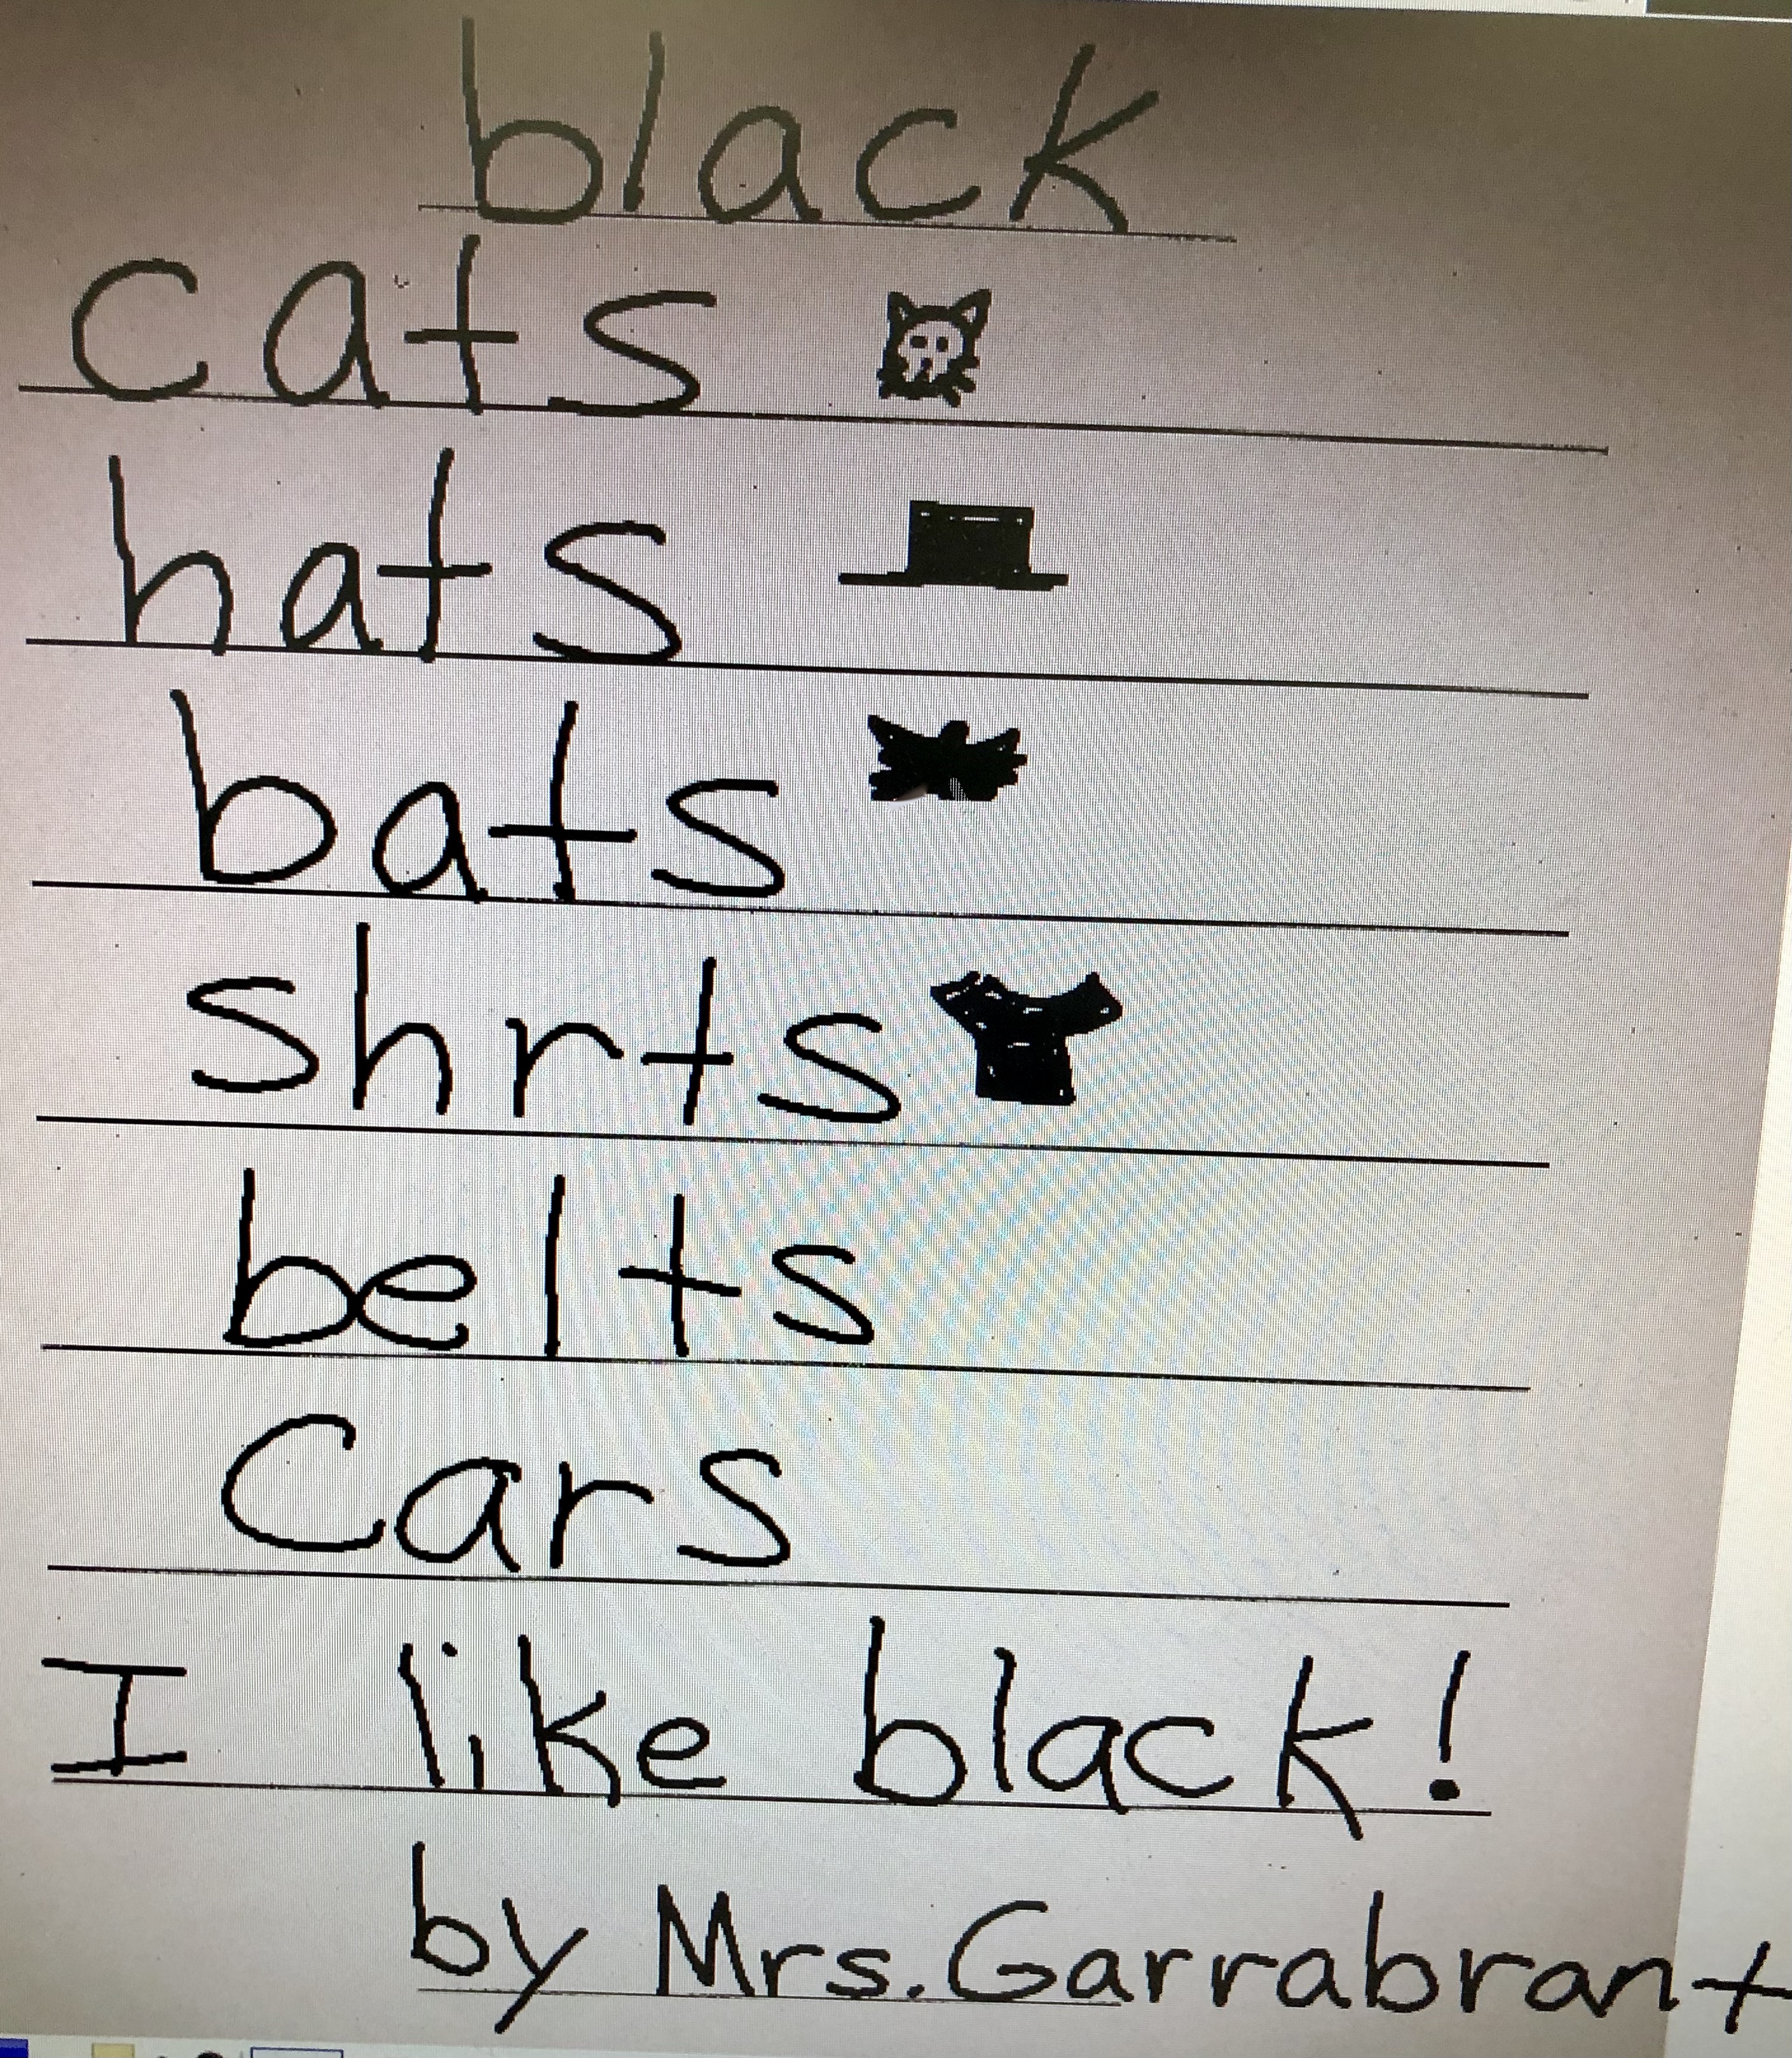 black
cats
hats
bats
shrts
belts
Cars
I like black!
by Mrs. Garrabrant